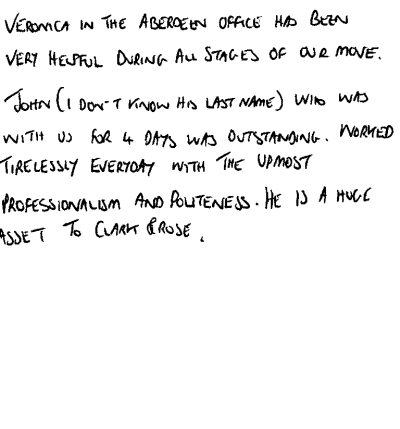 VERONICA IN THE ABERDEEN OFFICE HAD BEEN
VERY HELPFUL DURING ALL STAGES OF OUR MOVE.
JOHN (I DON'T KNOW HIS LAST NAME) WHO WAS
WITH US FOR 4 DAYS WAS OUTSTANDING. WORKED
TIRELESSLY EVERYDAY WITH THE UPMOST
PROFESSIONALISM AND POLITENESS. HE IS A HUGE
ASSET TO CLARK & ROSE.